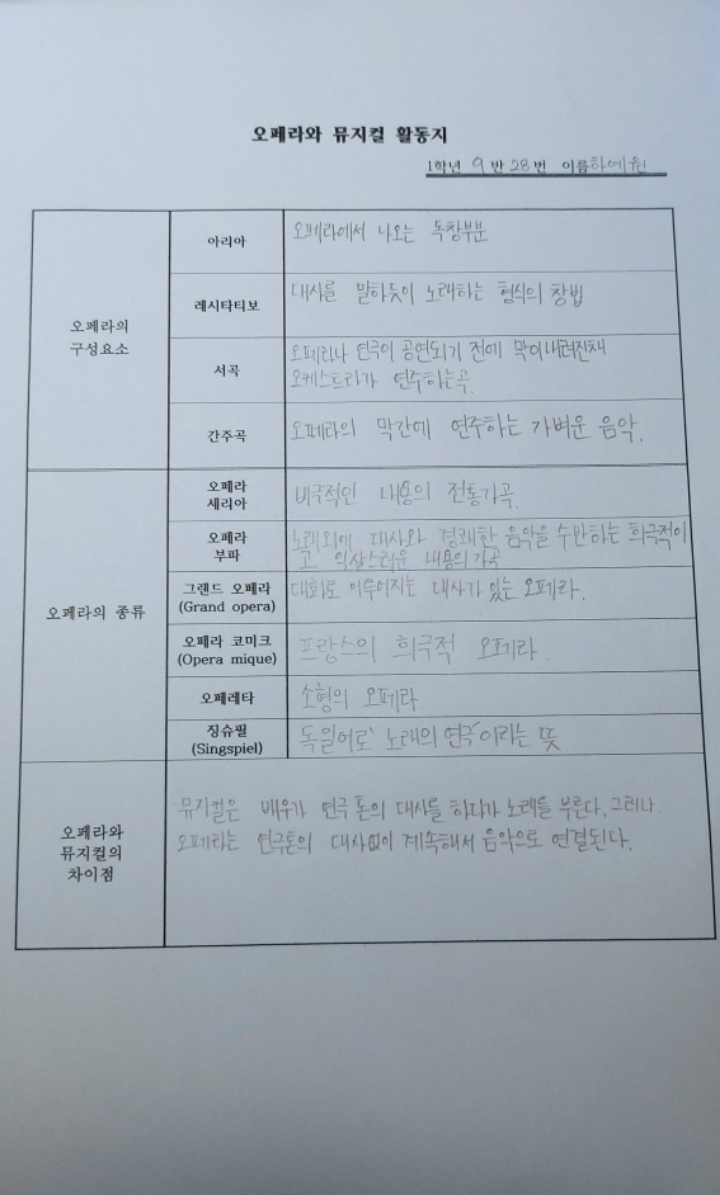 오페라와 뮤지컬 활동지
1학년 9 반 28 번 이름 하예원
오페라의
구성요소
아리아
오페라에서 나오는 독창부분
레시타티보
대사를 말하듯이 노래하는 형식의 창법
서곡
오페라나 연극이 공연되기 전에 막이내려진채
오케스트라가 연주하는곡.
간주곡
오페라의 막간에 연주하는 가벼운 음악.
오페라의 종류
오페라
세리아
비극적인 내용의 전통가곡.
오페라
부파
노래외에 대사와 경쾌한 음악을 수반하는 희극적이
고 익살스러운 내용의가곡
그랜드 오페라
(Grand opera)
대화로 이루어지는 대사가 있는 오페라.
오페라 코미크
(Opera mique)
프랑스의 희극적 오페라.
오페레타
소형의 오페라
징슈필
(Singspiel)
독일어로 '노래의 연극'이라는 뜻
오페라와
뮤지컬의
차이점
뮤지컬은 배우가 연극 톤의 대사를 하다가 노래를 부른다. 그러나.
오페라는 연극톤의 대사없이 계속해서 음악으로 연결된다.